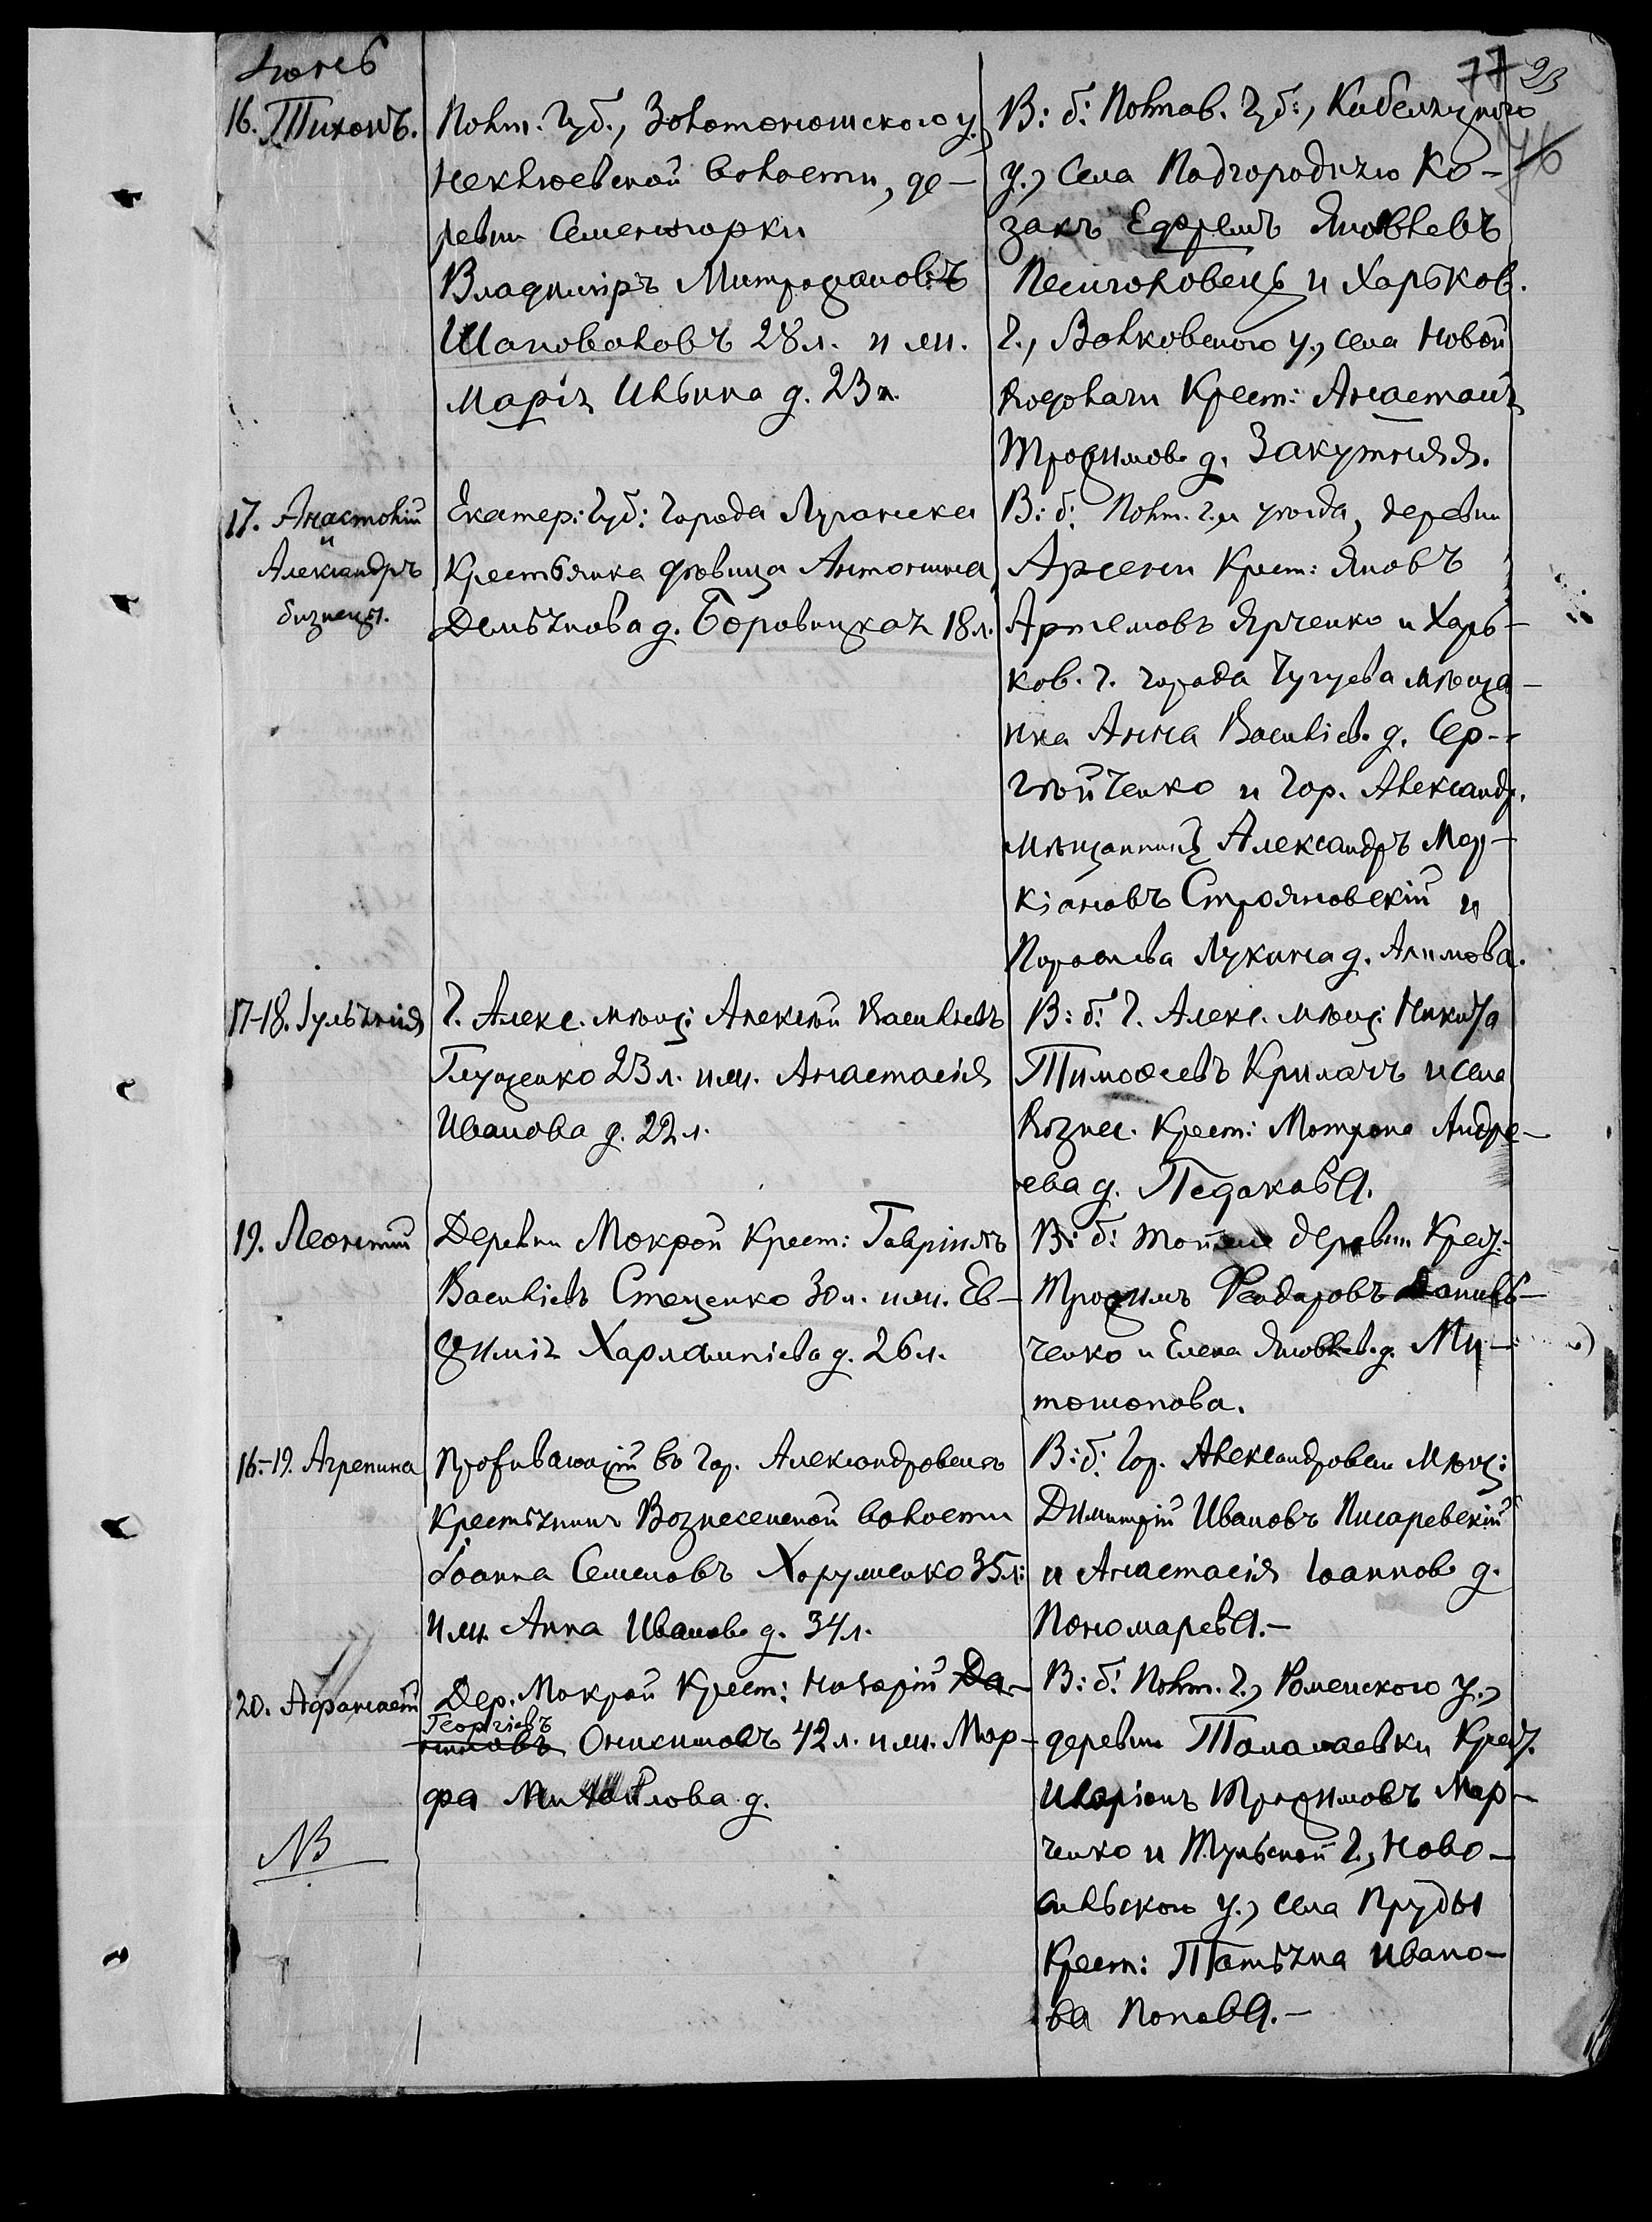 Іюнь
77 23
76
16. Тихонъ.
Полт. Губ., Золотоношского у.
Неклюевской волости, де-
ревни Семеногорки
Владиміръ Митрофановъ
Шаповаловъ 28 л. и ж.
Марія Ильина д. 23 л.
В: б: Полтав. Губ:, Кобелякскаго
у., Села Подгородняго Ко-
закъ Ефремъ Яковлевъ
и Харьков.
Г., Валковского у., села Новой
Водолаги Крест: Анастасія
Трофимова д. Закутняя.
17. Анатолій
и
Александръ
близнецы.
Екатер: Губ: Города Луганска
Крестьянка дѣвица Антонина
Демьянова д. Боровицкая 18 л.
В: б: Полт. Г. и уѣзда, деревни
Крест: Яковъ
Артемовъ Ярченко и Харь-
ков. Г. Города Чугуева мѣща-
нка Анна Василіев. д. Сер-
гѣйченко и Гор. Александр.
мѣщанинъ Александръ Мар-
кіановъ Строяновскій и
Лукина д. Алимова.
17-18. Іульянія
Г. Алекс. мѣщ: Алексѣй Василіевъ
Глущенко 23 л. и ж. Анастасія
Иванова д. 22 л.
В: б: Г. Алекс. мѣщ: Никита
Тимоѳеевъ Крилачъ и села
Вознес. Крест: Мотрона Андре-
ева д. Педакова.
19. Леонтий
Деревни Мокрой Крест: Гавріилъ
Василіевъ Стеценко 30 л. и ж. Ев-
фимія Харлампіева д. 26 л.
В: б: той же деревни Крест:
Трофимъ Ѳеодоровъ Даниль-
ченко и Елена Яковлев. д. Ми-
тошопова.
16.-19. Агрепина
Проживающій въ Гор. Александровскѣ
Крестьянинъ Вознесенской волости
Іоанна Семеновъ Хорушенко 35 л:
и ж. Анна Иванова д. 34 л.
В: б: Гор. Александровска Мѣщ:
Димитрій Ивановъ Писаревскій
и Анастасія Іоаннова д.
Пономарева.-
20. Афанасій
Дер. Мокрой Крест: Назарій Да-
Георгіевъ
ниловъ Онисимовъ 42 л. и ж. Мар-
фа д.
NB
В: б: Полт. Г., Роменского у.,
деревни Талалаевки Крест.
Иларіонъ Трофимовъ Мар-
ченко и Тульской Г., Ново-
сильского у., села Пруды
Крест: Татьяна Ивано-
ва Попова.-